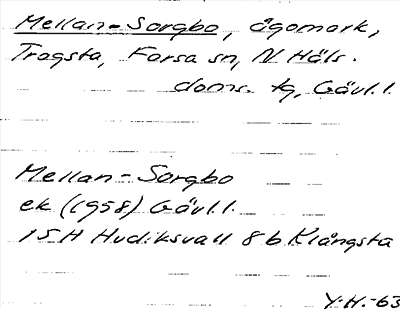 Mellan-Sorgbo, ägomark,
Trogsta, Forsa sn, N Häls.
doms. tg, Gävl.l.
Mellan-Sorgbo
ek (1958) Gävl.l.
15H Hudiksvall 8b Klångsta
Y.H.-63